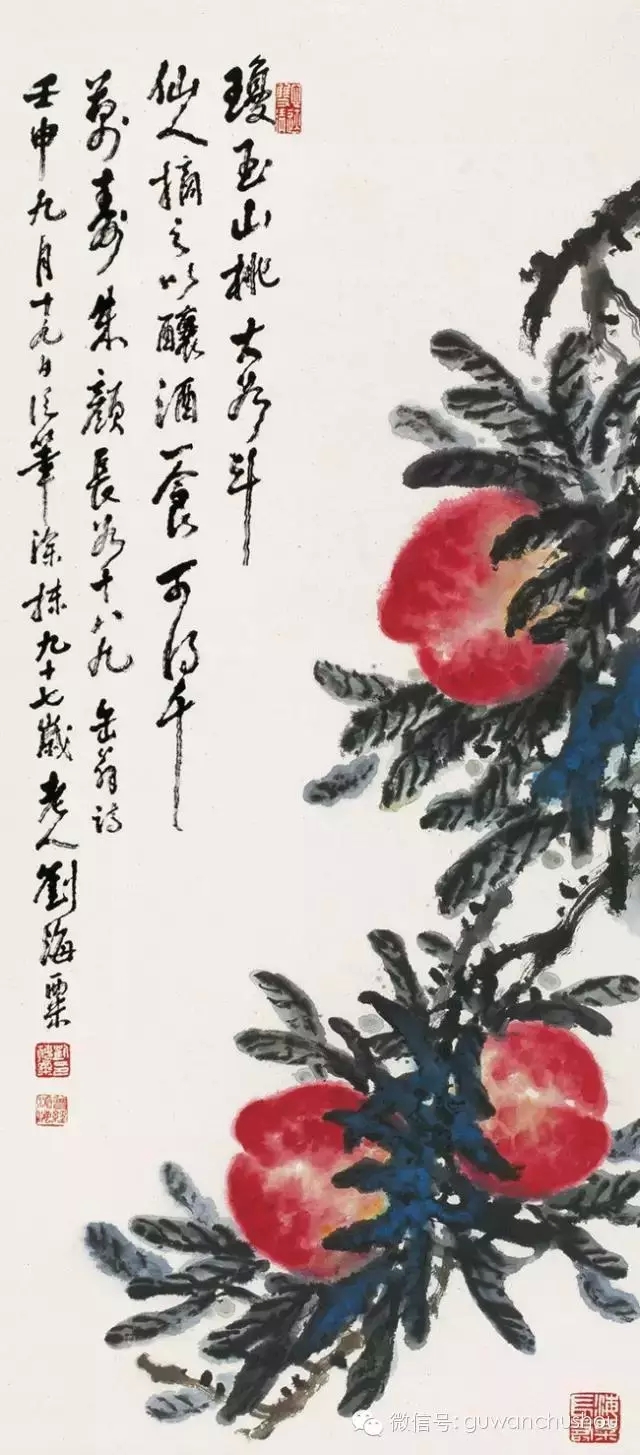 瓊玉山桃大如斗
仙人摘之以釀酒一食可得千
萬壽朱顏長如十八九 缶翁詩
壬申九月十九日筆塗抹九十七歲老人劉海粟
微信号: guwanchushou